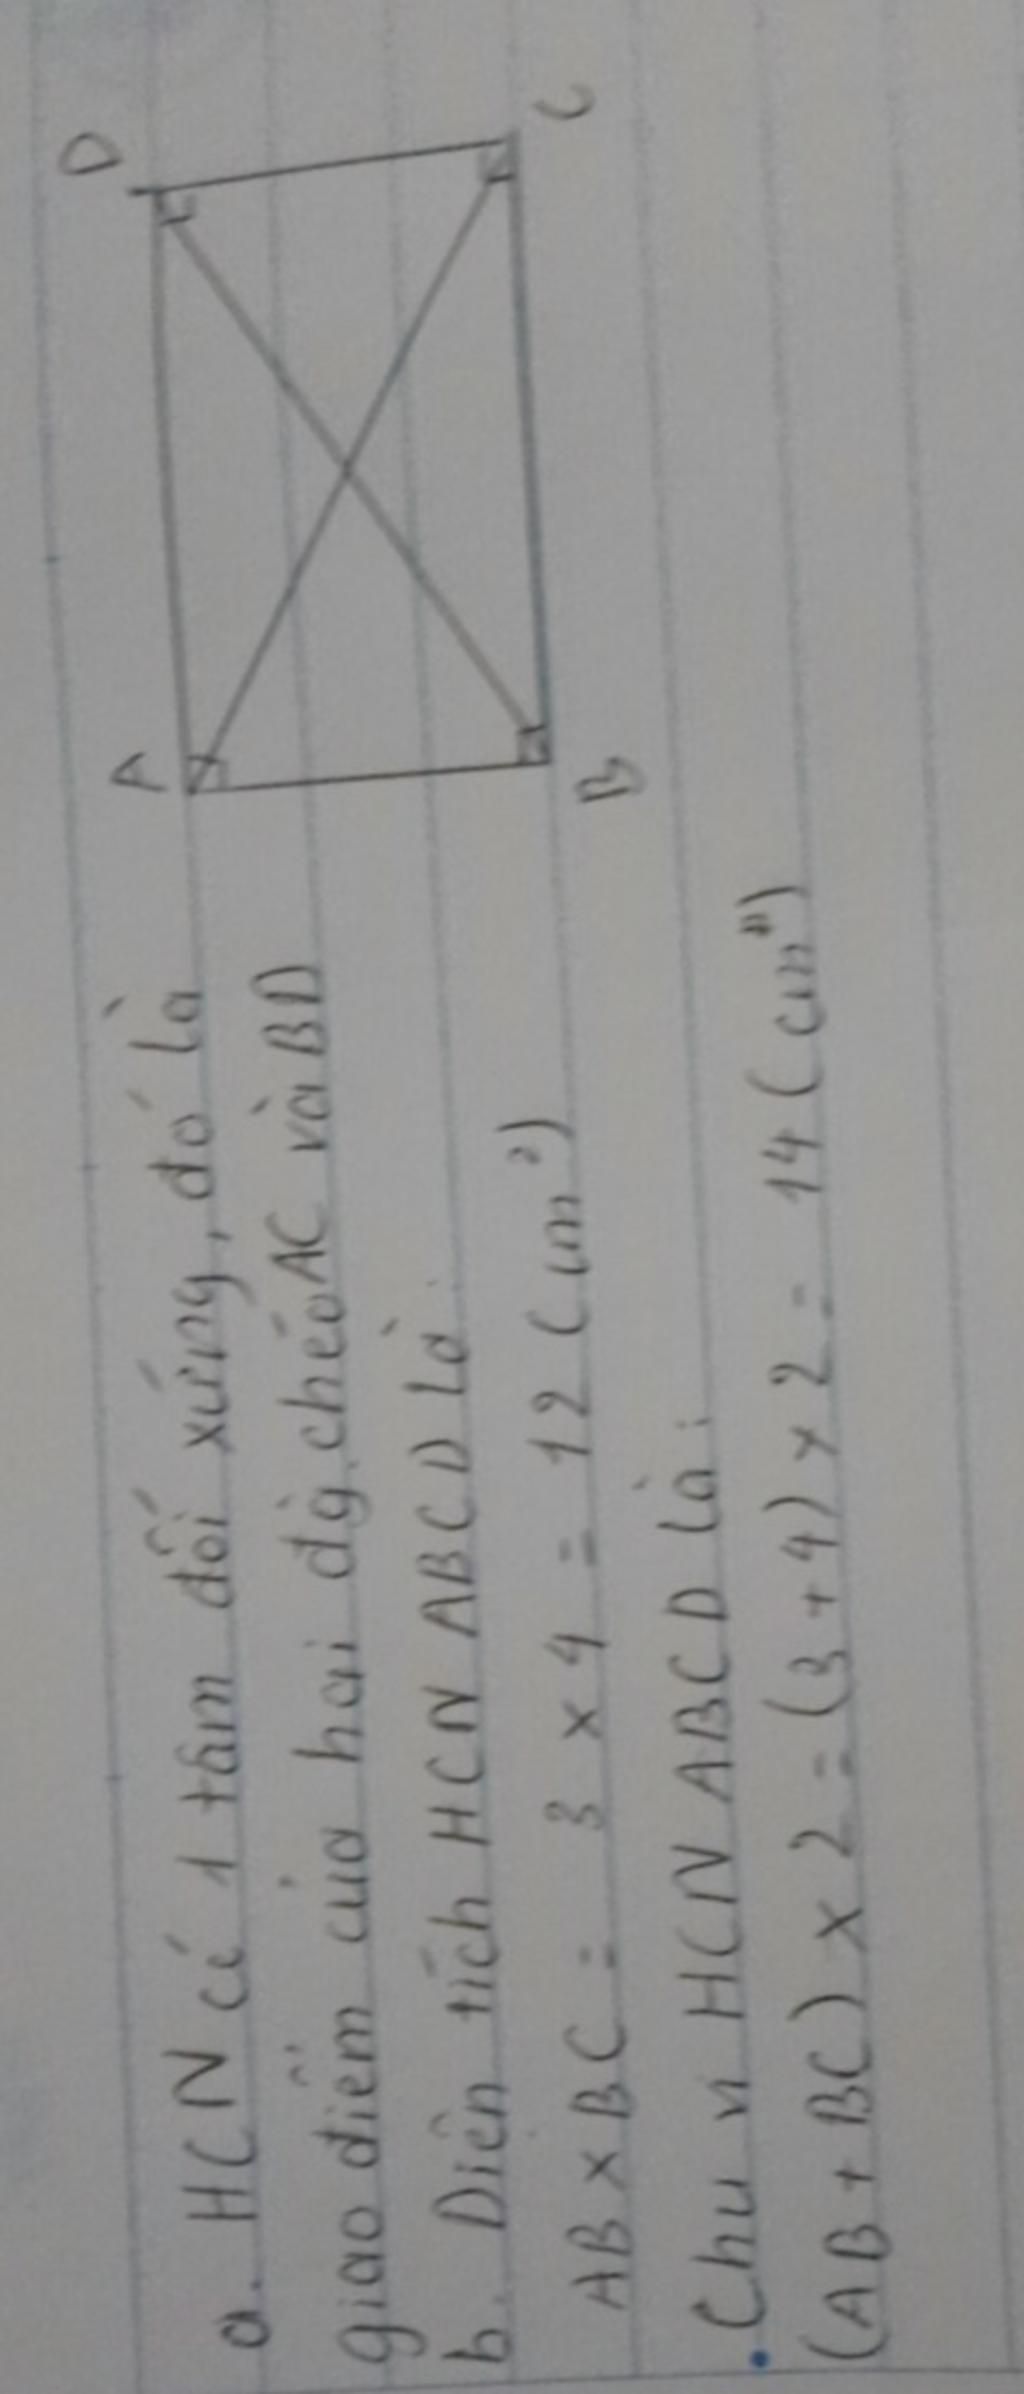 a. HCN có 1 tâm đối xứng, đó là
giao điểm của hai đg. chéo AC và BD
b. Diên tích HCN ABCD là.
AB x BC = 3 x 4 = 12 (cm²)
Chu vi HCN ABCD là:
(AB + BC) x 2 = (3 + 4) x 2 = 14 (cm)
A
D
B
C